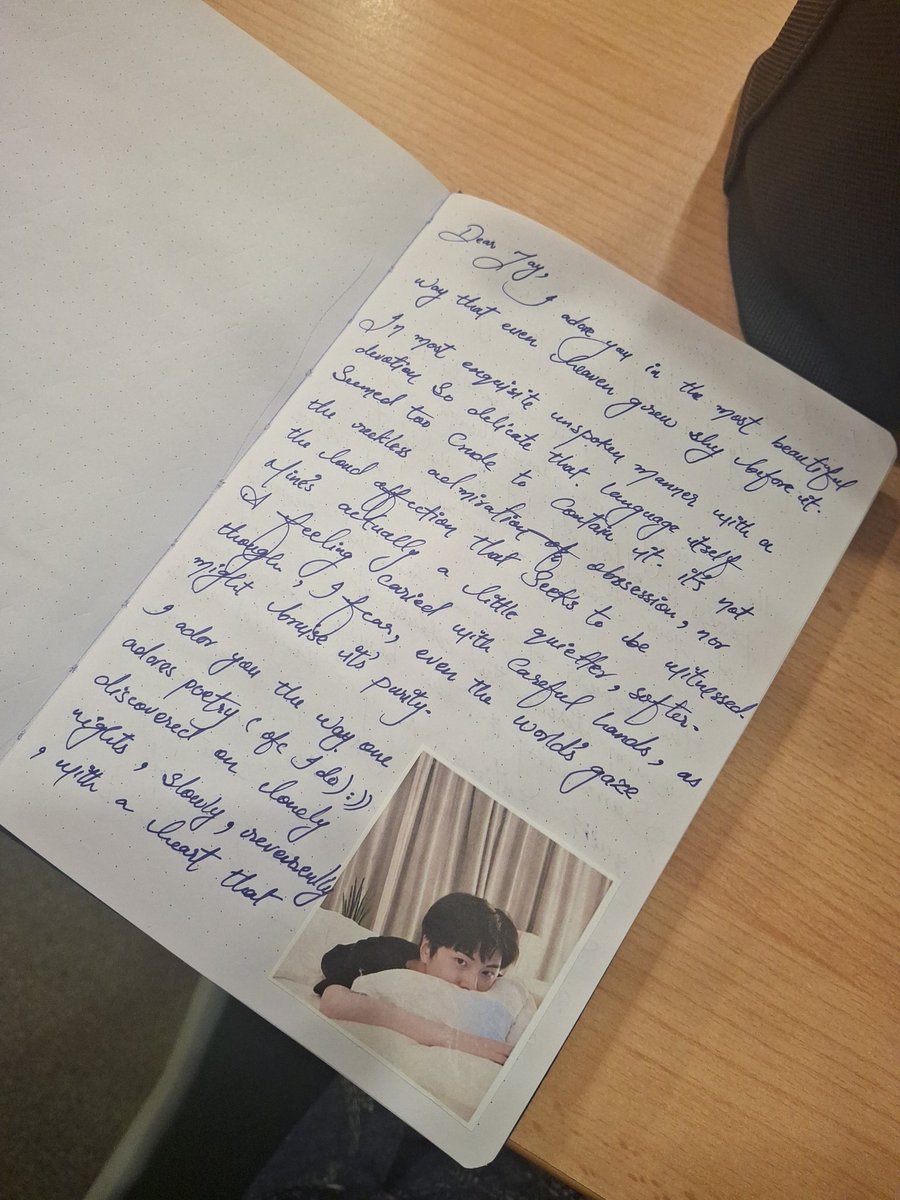 Dear Jay, I adore you in the most beautiful
way that even heaven grew shy before it.
In most exquisite unspoken manner with a
devotion so delicate that language itself
seemed too crude to contain it. it's not
the reckless admiration of obssession, nor
the loud affection that seeks to be witnessed.
Mine's actually a little quietter, softer.
A feeling caried with careful hands, as
though, I fear, even the world's gaze
might bruise it's purity.
I ador you the way one
adores poetry (ofc I do):))
discovered on lonely
nights, slowly, reverently
, with a heart that